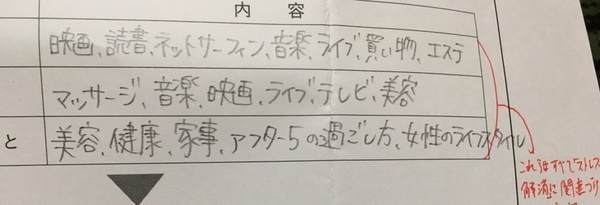 内容
映画、読書、ネットサーフィン、音楽、ライブ、買い物、エステ
マッサージ、音楽、映画、ライブ、テレビ、美容
と
美容、健康、家事、アフター5の過ごし方、女性のライフスタイル
これらはすべてストレス
解消に関連づけ